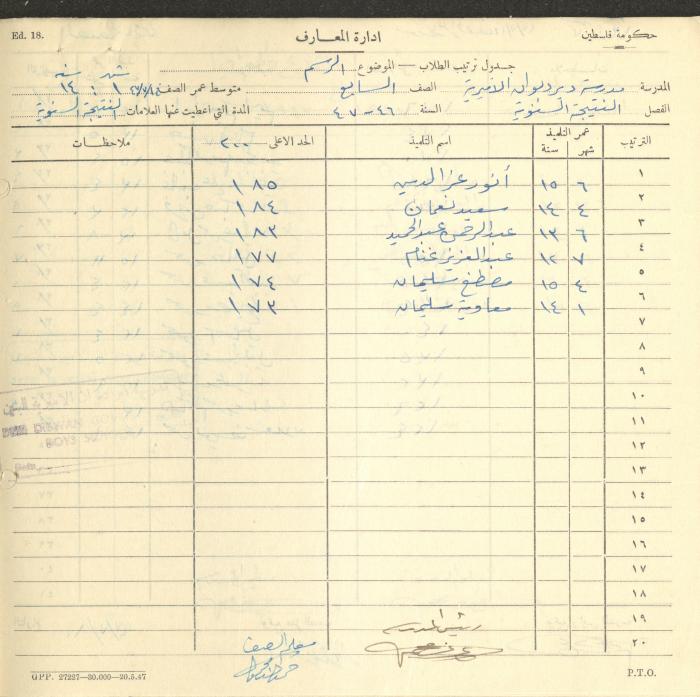 Ed. 18. ادارة المعارف حكومة فلسطين
جدول ترتيب الطلاب — الموضوع الرسم
المدرسة مدرسة دير ديوان الأميرية الصف السابع متوسط عمر الصف شهر سنة ١ : ١٤
الفصل النتيجة السنوية السنة ٤٦-٤٧ المدة التي اعطيت عنها العلامات النتيجة السنوية
الترتيب عمر التلميذ شهر سنة اسم التلميذ الحد الاعلى ٢٠٠ ملاحظات
١ ٦ ١٥ أنور عز الدين ١٨٥
٢ ٤ ١٤ سعيد نعمان ١٨٤
٣ ٦ ١٣ عبد الرحمن عبد الحميد ١٨٣
٤ ٧ ١٢ عبد العزيز غنام ١٧٧
٥ ٤ ١٥ مصطفى سليمان ١٧٤
٦ ١ ١٤ معاوية سليمان ١٧٣
٧
٨
٩
١٠
١١
١٢
١٣
١٤
١٥
١٦
١٧
١٨
١٩
٢٠
رئيس المدرسة
معلم الصف
GPP. 27227—30.000—20.5.47 P.T.O.